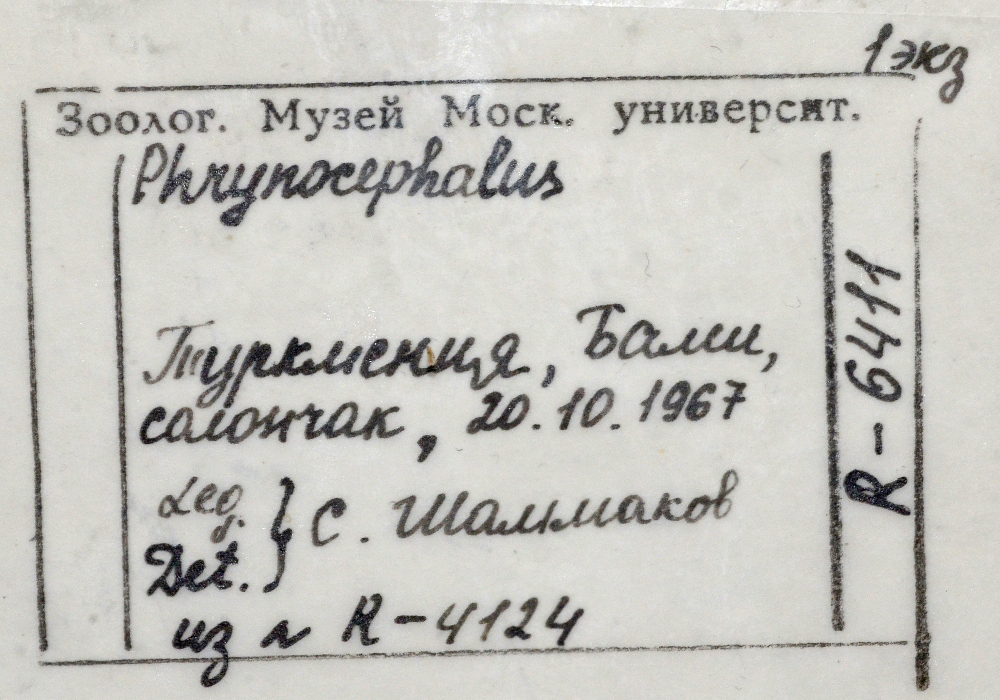 1 экз
Зоолог. Музей Моск. университ.
Phrynocephalus
Туркмения, Бами,
солончак, 20.10.1967
Leg. } С. Шаммаков
Det.
из R-4124
R-6411